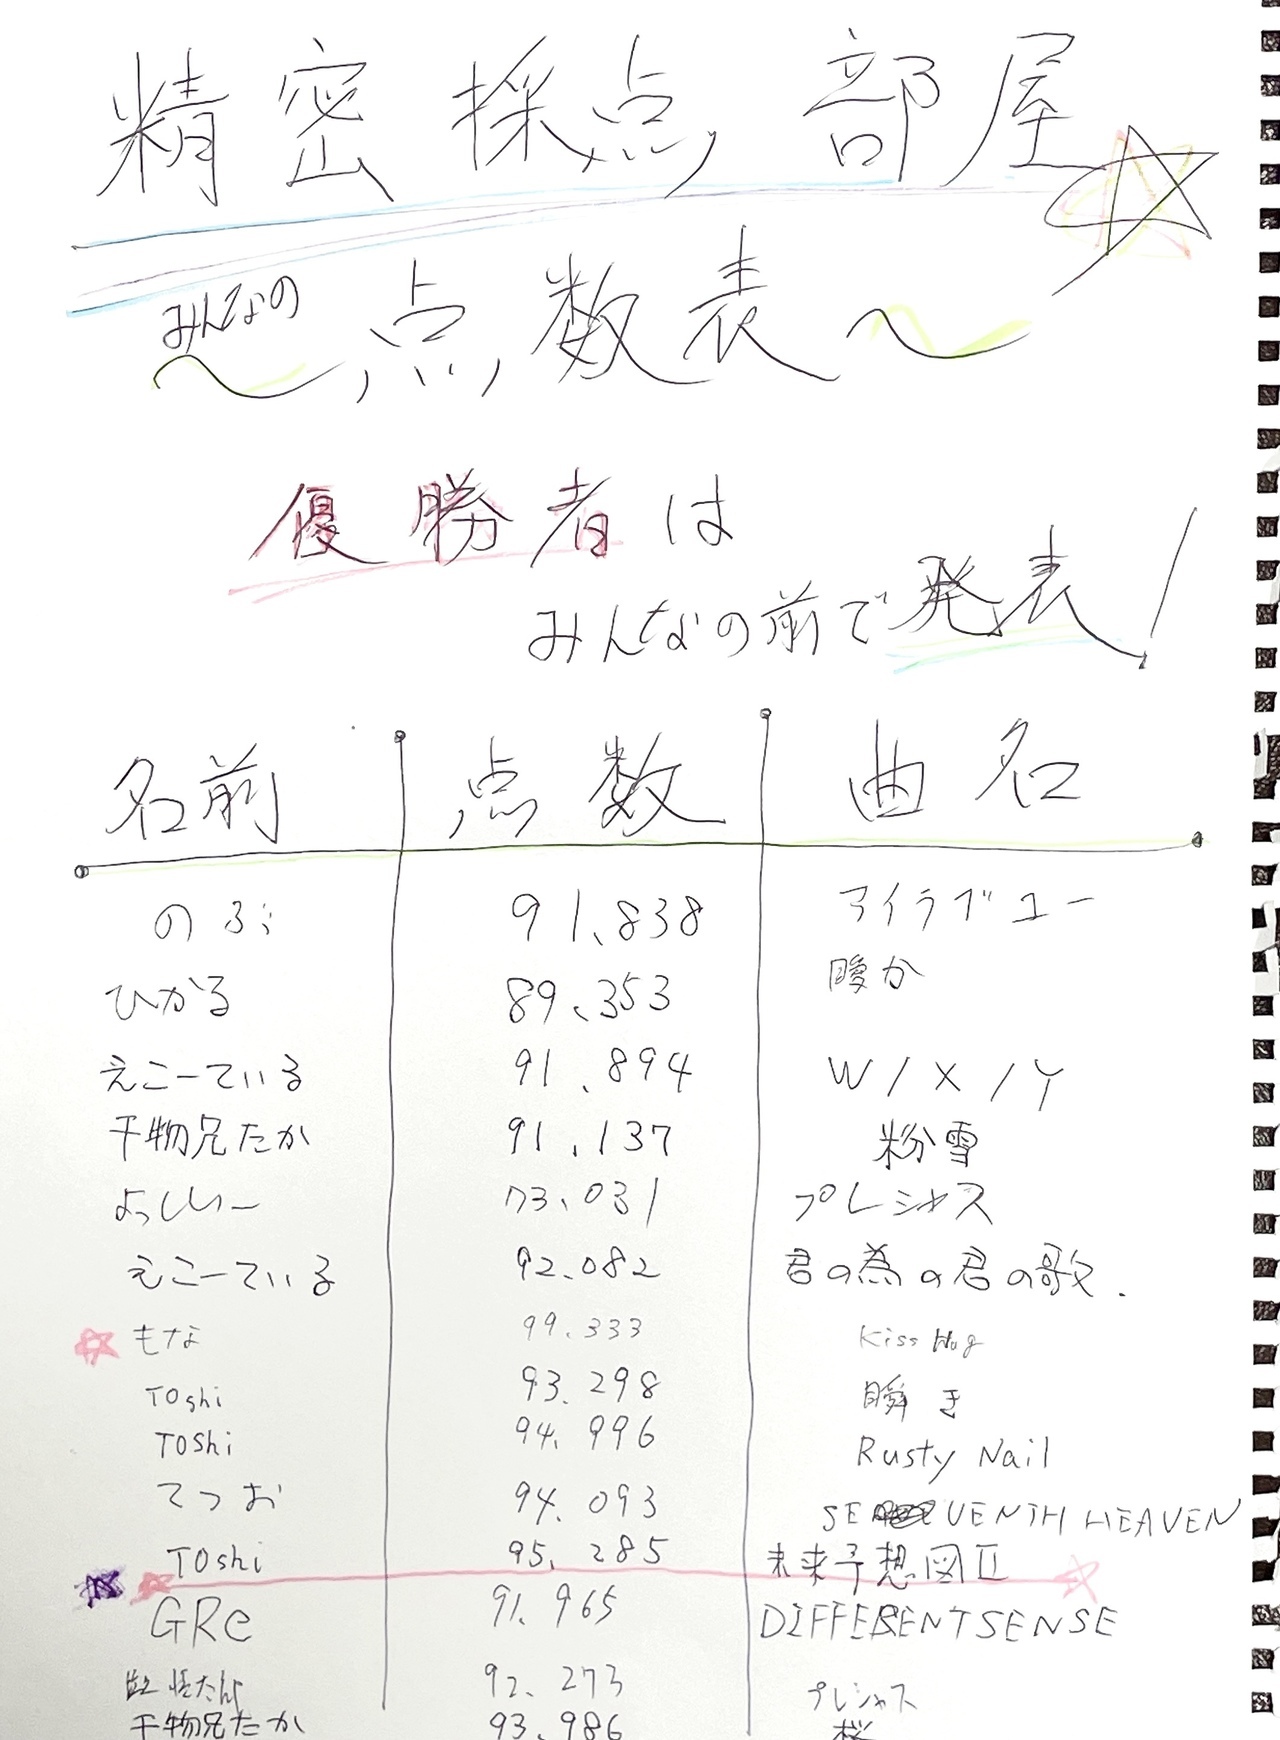 精密採点部屋
みんなの
～点数表～
優勝者は
みんなの前で発表!
名前 点数 曲名
のぶ 91.838 アイラブユー
ひかる 89.353 瞹か
えこーている 91.894 W/X/Y
干物兄たか 91.137 粉雪
よっしぃー 73.031 プレシャス
えこーている 92.082 君の為の君の歌.
もな 99.333 Kiss Hug
TOshi 93.298 瞬き
TOShi 94.996 Rusty Nail
てつお 94.093 SEVENTH HEAVEN
TOshi 95.285 未来予想図II
GRe 91.965 DIFFERENT SENSE
92.273 プレシャス
干物兄たか 93.986 桜